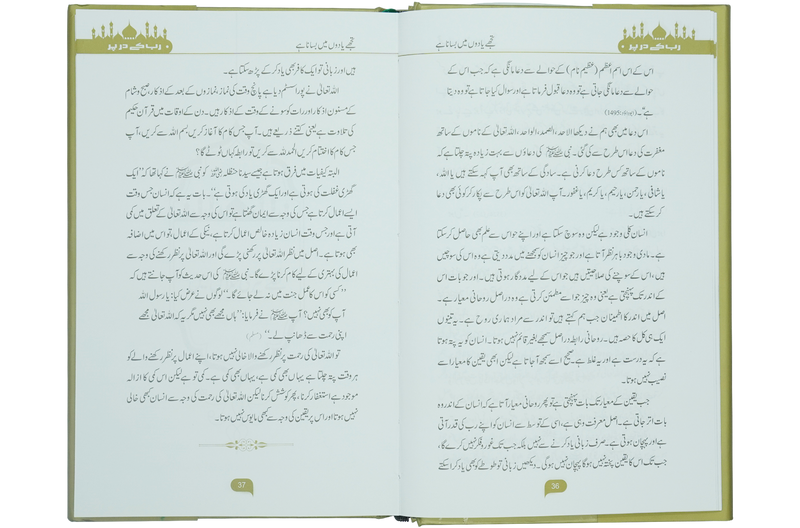 رب کے در پر
تجھے یادوں میں بسانا ہے
اس کے اس اسم اعظم (عظیم نام) کے حوالے سے دعا مانگی ہے کہ جب اس کے
حوالے سے دعا مانگی جاتی ہے تو وہ دعا قبول فرماتا ہے اور سوال کیا جاتا ہے تو وہ دیتا
ہے"۔ (ابوداؤد: 1495)
اس دعا میں بھی ہم نے دیکھا الاحد، الصمد، الواحد، اللہ تعالیٰ کے ناموں کے ساتھ
مغفرت کی دعا اس طرح سے کی گئی۔ نبی ﷺ کی دعاؤں سے بہت زیادہ پتہ چلتا ہے کہ
ناموں کے ساتھ کس طرح دعا کرنی ہے۔ سادگی کے ساتھ بھی آپ کہہ سکتے ہیں یا اللہ،
یا شافی، یا رحمن، یا رحیم، یا کریم، یا غفور۔ آپ اللہ تعالیٰ کو اس طرح سے پکار کر کوئی بھی دعا
کر سکتے ہیں۔
انسان کلی وجود ہے لیکن وہ سوچ سکتا ہے اور اپنے حواس سے علم بھی حاصل کر سکتا
ہے۔ مادی وجود باہر نظر آتا ہے اور جو چیز انسان کو سمجھنے میں مدد دیتی ہے وہ اس کی سوچیں
ہیں، اس کے سوچنے کی صلاحیتیں ہیں جو اس کے لیے مددگار ہوتی ہیں۔ اور جو بات اس
کے اندر تک پہنچتی ہے یعنی وہ چیز جو اسے مطمئن کرتی ہے وہ دراصل روحانی معیار ہے۔
اصل میں اندر کا اطمینان جب ہم کہتے ہیں تو اندر سے مراد ہماری روح ہے۔ یہ تینوں
ایک ہی کل کا حصہ ہیں۔ روحانی رابطہ دراصل سمجھے بغیر قائم نہیں ہوتا۔ انسان کو یہ پتہ ہوتا
ہے کہ یہ درست ہے اور یہ غلط ہے۔ صحیح اسے سمجھ آ جاتا ہے لیکن ابھی یقین کا معیار اسے
نصیب نہیں ہوتا۔
جب یقین کے معیار تک بات پہنچتی ہے تو پھر روحانی معیار آتا ہے کہ انسان کے اندر وہ
بات اتر جاتی ہے۔ اصل معرفت وہی ہے، اسی کے توسط سے انسان کو اپنے رب کی قدر آتی
ہے اور پہچان ہوتی ہے۔ صرف زبانی یاد کرنے سے نہیں بلکہ جب تک غور و فکر نہیں کرے گا،
جب تک اس کا یقین پختہ نہیں ہوگا پہچان نہیں ہوگی۔ دیکھیں زبانی تو طوطے کو بھی یاد کرا سکتے
36
رب کے در پر
تجھے یادوں میں بسانا ہے
ہیں اور زبانی تو ایک کافر بھی یاد کر کے پڑھ سکتا ہے۔
اللہ تعالیٰ نے پورا سسٹم دیا ہے پانچ وقت کی نماز، نمازوں کے بعد کے اذکار، صبح و شام
کے مسنون اذکار اور رات کو سونے کے وقت کے اذکار ہیں۔ دن کے اوقات میں قرآن حکیم
کی تلاوت ہے یعنی کتنے ذریعے ہیں۔ آپ جس کام کا آغاز کریں، بسم اللہ سے کریں، آپ
جس کام کا اختتام کریں الحمد للہ سے کریں تو رابطہ کہاں ٹوٹے گا؟
البتہ کیفیات میں فرق ہوتا ہے جیسے سیدنا حنظلہ کو نبی ﷺ نے کہا تھا کہ "ایک
گھڑی غفلت کی ہوتی ہے اور ایک گھڑی یاد کی ہوتی ہے"۔ بات یہ ہے کہ انسان جس وقت
ایسے اعمال کرتا ہے جس کی وجہ سے ایمان گھٹتا ہے تو اس کی وجہ سے اللہ تعالیٰ کے تعلق میں کمی
آتی ہے اور جس وقت انسان زیادہ خالص اعمال کرتا ہے، نیکی کے اعمال، تو اس میں اضافہ
بھی ہوتا ہے۔ اصل میں نظر اللہ تعالیٰ پر رکھنی پڑے گی اور اللہ تعالیٰ پر نظر رکھنے کی وجہ سے
اعمال کی بہتری کے لیے کام کرنا پڑے گا۔ نبی ﷺ کی اس حدیث کو آپ جانتے ہیں کہ
"کسی کو اس کا عمل جنت میں نہ لے جائے گا۔" لوگوں نے عرض کیا: یا رسول اللہ
آپ کو بھی نہیں؟ آپ ﷺ نے فرمایا: "ہاں مجھے بھی نہیں مگر یہ کہ اللہ تعالیٰ مجھے
اپنی رحمت سے ڈھانپ لے۔" (مسلم)
تو اللہ تعالیٰ کی رحمت پر نظر رکھنے والا خالی نہیں ہوتا، اپنے اعمال پر نظر رکھنے والے کو
ہر وقت پتہ چلتا ہے یہاں بھی کمی ہے، یہاں بھی کمی ہے۔ کمی تو ہے لیکن اس کمی کا ازالہ
موجود ہے استغفار کرنا، پھر کوشش کرنا لیکن اللہ تعالیٰ کی رحمت کی وجہ سے انسان کبھی خالی
نہیں ہوتا اور اس پر یقین کی وجہ سے کبھی مایوس نہیں ہوتا۔
37